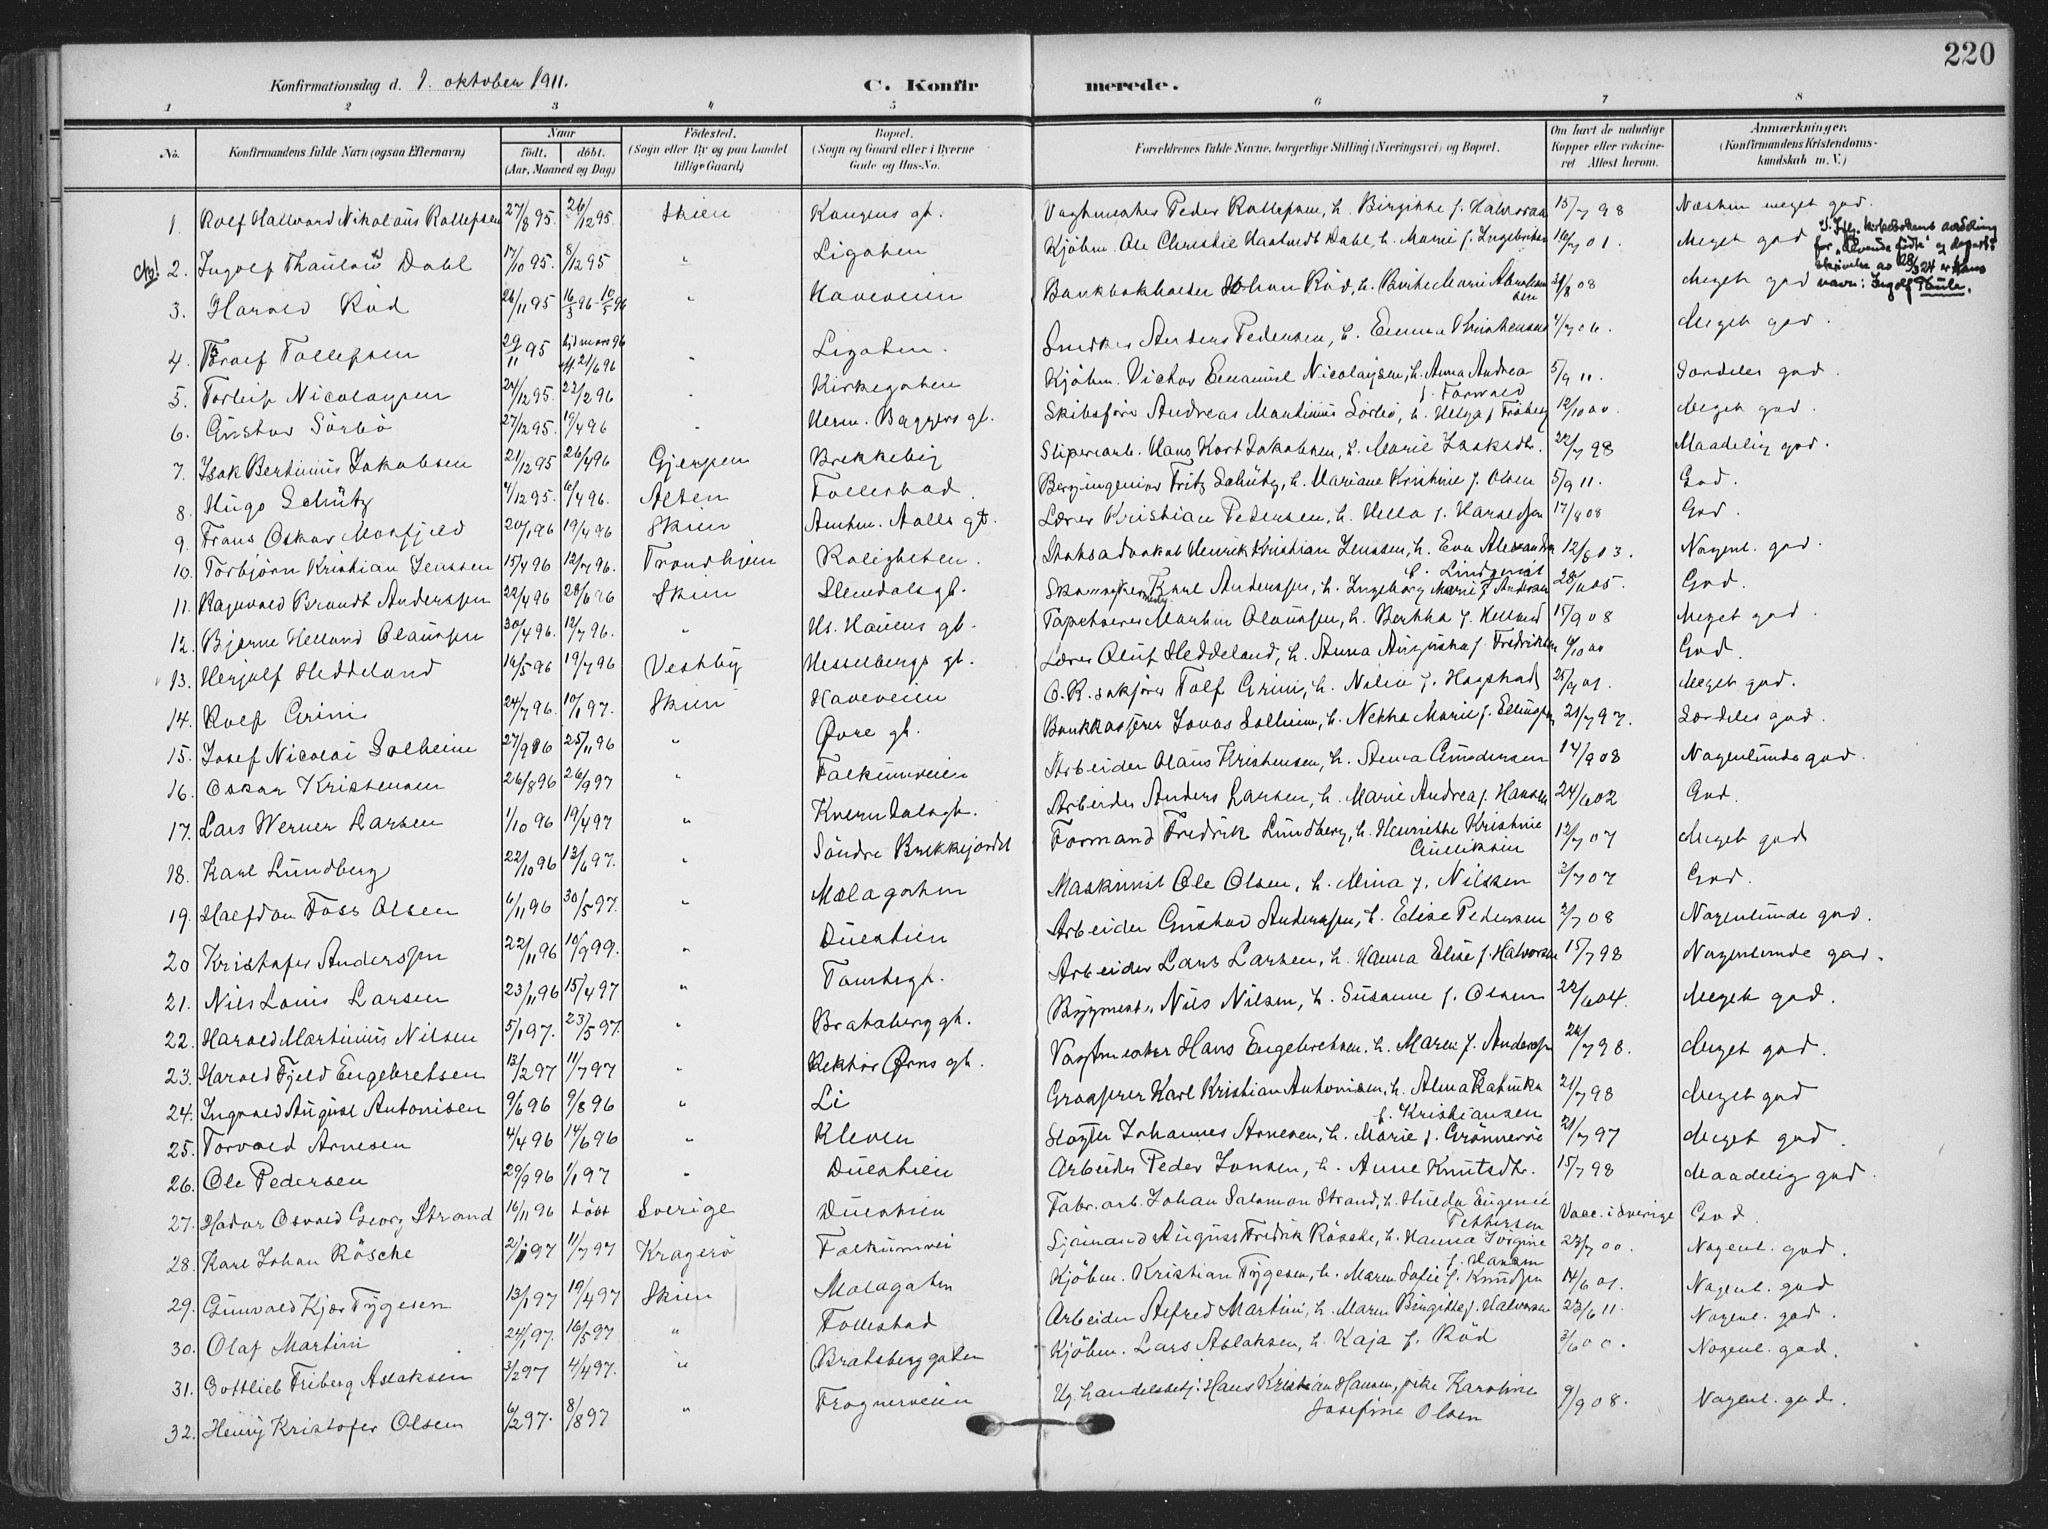 220
Konfirmationsdag d. 1. oktober 1911.
C. Konfirmerede.
1 2 3 4 5 6 7 8
No. Konfirmandens fulde Navn (ogsaa Efternavn) Naar født. døbt. (Aar, Maaned og Dag) Fødested. (Sogn eller By og paa Landet tillige Gaard) Bopæl. (Sogn og Gaard eller i Byerne Gade og Hus-No. Forældrenes fulde Navne, borgerlige Stilling (Næringsvei) og Bopæl. Om havt de naturlige Kopper eller vaccineret Attest herom. Anmærkninger. (Konfirmandens Kristendomskundskab m. V.)
1. Rolf Hallvard Nikolaus Rollefsen 27/8 95. 26/12 95 Skien Kongens gt. Vagtmester Peder Rollefsen, h. Birgitte f. Halvorsen 15/7 98 Næsten meget god.
2. Ingolf Thaulow Dahl 17/10 95. 8/12 95 " Ligaten Kjøbm. Ole Christie Dahl, h. Marie f. Ingebrigtsen 16/7 01. Meget god
3. Harald Röd 26/11 95 16/3 96 - 10/5 96 " Haveveien Bankbokholder Johan Röd, h. Birthe Marie 08 Meget god
navn: Ingolf Thule.
4. Thoralf Tollefsen 29/11 95 21/6 96 " Ligaten. Snedker Pedersen, h. Emma Kristensen 4/7 06. Meget god.
5. Torleif Nicolaysen 24/12 95. 22/2 96 " Kirkegaten Kjøbm. Victor Emanuel Nicolaysen, h. Anna Andrea f. Forvald 5/9 11. Særdeles god.
6. Gustav Sörbö 27/12 95. 19/4 96 " Herm. Baggers gt. Skibsfører Andreas Martinius Sörbö, h. Helga f. Fröberg 12/10 00. Meget god.
7. Isak Bertinius Jakobsen 21/12 95 26/4 96 Gjerpen Brekkeby Sliperiarb. Hans Kort Jakobsen, h. Marie Isaksdtr. 22/7 98 Maadelig god.
8. Hugo Schütz 4/12 95. 6/4 96. Alten Follestad. Bergingeniør Fritz Schütz, h. Mariane Kristine f. Olsen 5/9 11. God.
9. Frans Oskar Monfjeld 20/1 96 19/4 96 Skien Amtm. Aalls gt. Lærer Kristian Pedersen, h. Hella f. 17/8 08 God.
10. Torbjörn Kristian Jenssen 15/4 96 12/7 96. Trondhjem Roligheten. Statsadvokat Henrik Kristian Jenssen, h. Eva Alexandra f. Lindqvist 12/8 03. Nogenl. god.
11. Ragnvald Brandt Anderssen 22/4 96 28/6 96 Skien Slemdalsgt. Skomaker Karl Anderssen, h. Ingeborg Marie f. Andersen 28/6 05. God.
12. Bjarne Helland Olaussen 30/4 96. 12/7 96. " Hs. Houens gt. Tapetserer Martin Olaussen, h. Bertha f. Helland 15/9 08 Meget god.
13. Herjolf Heddeland 16/5 96 19/7 96 Vestby Hesselbergs gt. Lærer Oluf Heddeland, h. Anna Augusta f. Fredriksen 9/10 00 God.
14. Rolf Grini 24/7 96. 10/1 97. Skien Haveveien O.R.sakfører Tolf Grini, h. f. Hogstad 25/9 01. Meget god.
15. Josef Nicolai Solheim 27/9 96 25/11 96 " Øvre gt. Bankkasserer Jonas Solheim, h. Nekka Marie f. Ellingsen 21/7 97. Særdeles god.
16. Oskar Kristensen 26/8 96 26/9 97 " Falkumveien Arbeider Olaus Kristensen, h. Anna Gundersen 14/9 08 Nogenlunde god.
17. Lars Werner Larsen 1/10 96 19/4 97 " Kverndalsgt. Arbeider Anders Larsen, h. Marie Andrea f. Hansen 24/6 02 God.
18. Karl Lundberg 22/10 96 13/6 97. " Söndre Brekkejordet Formand Fredrik Lundberg, h. Henriette Kristine Gulliksen 12/7 07 Meget god
19. Halfdan Foss Olsen 6/11 96 30/5 97. " Mælagaten Maskinist Ole Olsen, h. Mina f. Nilssen 3/7 07 God.
20 Kristofer Anderssen 22/11 96 10/9 99. " Duestien Arbeider Gustav Anderssen, h. Elise Pedersen 2/7 08 Nogenlunde god.
21. Nils Louis Larsen 23/11 96 15/4 97 " Tomtegt. Arbeider Lars Larsen, h. Hanna Elise f. Halvorsen 15/7 98 Nogenlunde god.
22. Harald Martinius Nilsen 5/1 97. 23/5 97. " Bratsberg gt. Bygmester Nils Nilsen, h. Susanne f. Olsen 22/6 04. Meget god.
23. Harald Fjeld Engebretsen 13/2 97 11/7 97 " Rektor Ørns gt. Vagtmester Hans Engebretsen, h. Maren f. Anderssen 22/7 98. Meget god.
24. Ingvald August Antonisen 9/6 96 9/8 96 " Li Graasserer Karl Kristian Antonisen, h. Alma Katinka f. Kristiansen 21/7 98 Meget god
25. Torvald Arnesen 4/4 96 14/6 96 " Kleven Slagter Johannes Arnesen, h. Marie f. Grönneröe 21/7 97 Meget god.
26. Ole Pedersen 29/9 96 1/1 97 " Duestien Arbeider Peder Jonsen, h. Anne Knutsdtr. 15/7 98 Maadelig god.
27. Hadar Osvald Georg Strand 16/11 96 döbt Sverige Duestien Fabr. arb. Johan Salomon Strand, h. Hilda Eugenie Pettersen Vacc. i Sverige God.
28. Karl Johan Röscke 2/1 97 11/7 97 Kragerö Falkumvei Sjömand August Fredrik Röscke, h. Hanna Jorgine f. Hansen 23/7 00. Nogenl. god.
29. Gunvald Kjær Tygesen 13/1 97 19/4 97 Skien Mælagaten Kjøbm. Kristian Tygesen, h. Maren Sofie f. Knudsen 14/6 01. Nogenl. god
30. Olaf Martini 24/1 97. 16/5 97 " Follestad Arbeider Alfred Martini, h. Maren Birgitte f. Halvorsen 23/6 11. Nogenl. god.
31. Gottlieb Friberg Aslaksen 3/2 97 4/4 97. " Bratsberggaten Kjøbm. Lars Aslaksen, h. Kaja f. Röd 3/6 00. Nogenl. god.
32. Henry Kristofer Olsen 6/2 97. 8/8 97 " Frognerveien Ug. handelsbetj. Hans Kristian Hansen, pike Karoline Josefine Olsen 9/9 08. Nogenl. god.